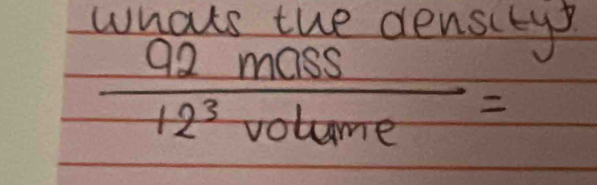 whats the density?
92 mass
12³ volume =